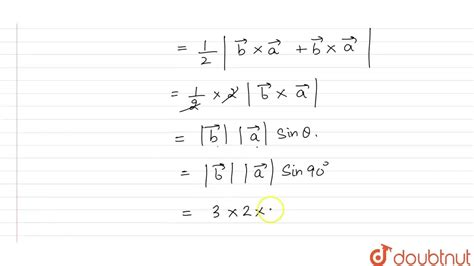 = 1/2 | b⃗ × a⃗ + b⃗ × a⃗ |
= 1/2 × 2 | b⃗ × a⃗ |
= |b⃗| |a⃗| Sin θ.
= |b⃗| |a⃗| Sin 90°
= 3 × 2 ×
doubtnut